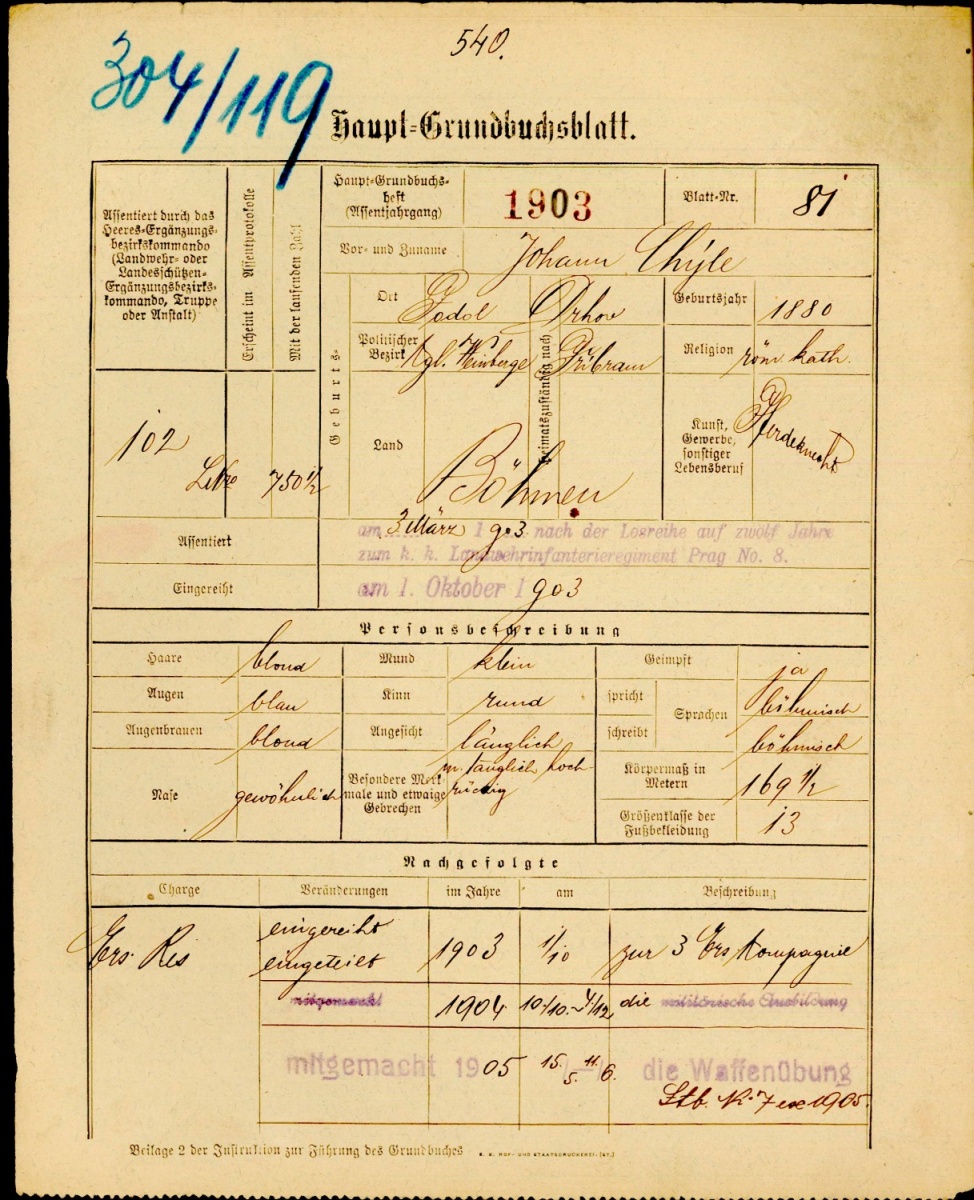 540.
304/119
Haupt-Grundbuchsblatt.
Assentiert durch das
Heeres-Ergänzungs-
bezirkskommando
(Landwehr- oder
Landesschützen-
Ergänzungsbezirks-
kommando, Truppe
oder Anstalt)
Erscheint im Assentprotokolle
Mit der laufenden Zahl
102
750½
Haupt-Grundbuchs-
heft
(Assentjahrgang)
1903
Blatt-Nr.
81
Vor- und Zuname
Johann Chýle
Geburts-
Ort
Podol
Heimatszuständig nach
Drhov
Geburtsjahr
1880
Politischer
Bezirk
Kgl. Weinberge
Přibram
Religion
röm kath.
Land
Böhmen
Kunst,
Gewerbe,
sonstiger
Lebensberuf
Pferdeknecht
Assentiert
am 3 März 1903 nach der Losreihe auf zwölf Jahre
zum k. k. Landwehrinfanterieregiment Prag No. 8.
Eingereiht
am 1. Oktober 1903
Personsbeschreibung
Haare blond Mund klein Geimpft ja
Augen blau Kinn rund spricht Sprachen böhmisch
Augenbrauen blond Angesicht länglich schreibt böhmisch
Nase gewöhnlich
Besondere Merk-
male und etwaige
Gebrechen
hoch
Körpermaß in
Metern
169 1/2
Größenklasse der
Fußbekleidung
13
Nachgefolgte
Charge Veränderungen im Jahre am Beschreibung
Ers. Res eingereiht
eingeteilt 1903 1/10 zur 3 Ers Kompagnie
mitgemacht 1904 10/10.-4/12. die militärische Ausbildung
mitgemacht 1905 15./5. 11./6. die Waffenübung
Ltb. Nr. 7 ex 1905.
Beilage 2 der Instruktion zur Führung des Grundbuches
K. K. HOF- UND STAATSDRUCKEREI.